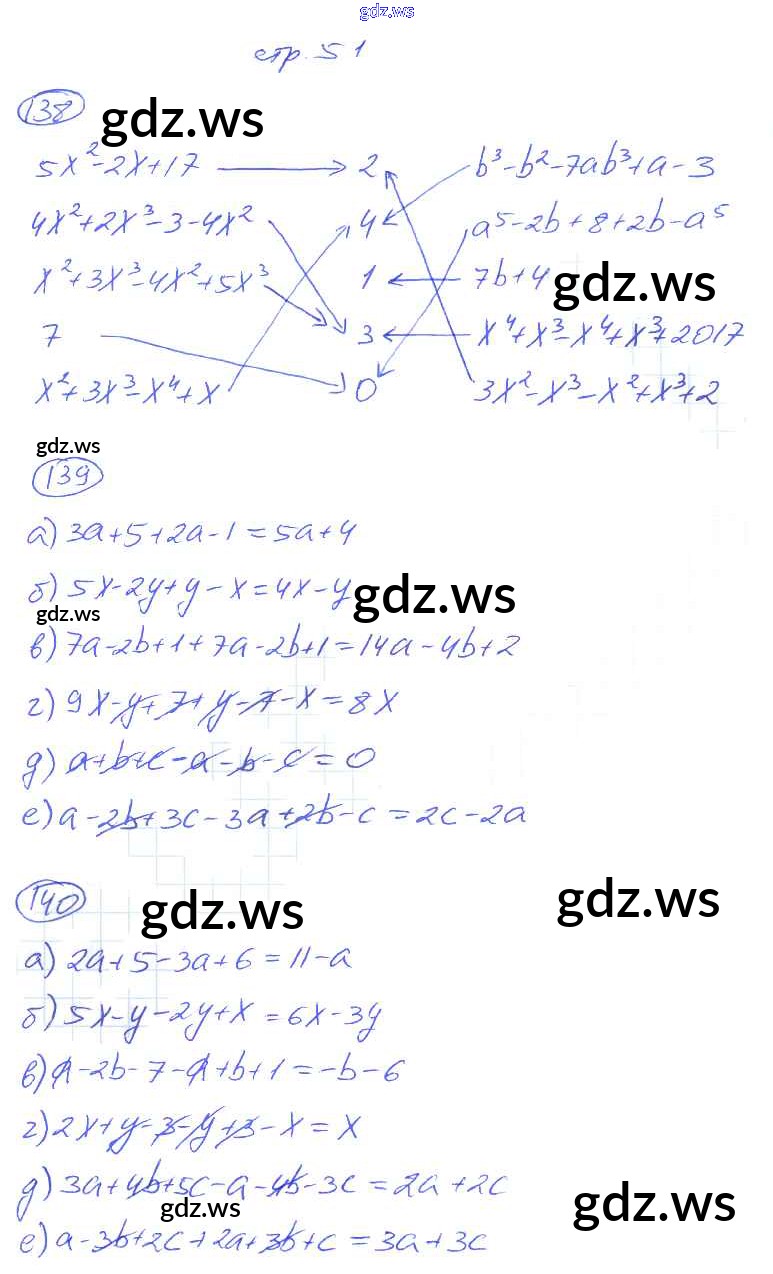 gdz.ws
стр. 51
138 gdz.ws
5x²-2x+17 → 2 b³-b²-7ab³+a-3
4x²+2x³-3-4x² 4 a⁵-2b+8+2b-a⁵
x²+3x³-4x²+5x³ 1 ← 7b+4 gdz.ws
7 3 ← x⁴+x³-x⁴+x³+2017
x²+3x³-x⁴+x 0 3x²-x³-x²+x³+2
gdz.ws
139
а) 3a+5+2a-1=5a+4
б) 5x-2y+y-x=4x-y gdz.ws
gdz.ws
в) 7a-2b+1+7a-2b+1=14a-4b+2
г) 9x-y+7+y-7-x=8x
д) a+b+c-a-b-c=0
е) a-2b+3c-3a+2b-c=2c-2a
140 gdz.ws gdz.ws
а) 2a+5-3a+6=11-a
б) 5x-y-2y+x=6x-3y
в) a-2b-7-a+b+1=-b-6
г) 2x+y-3-y+3-x=x
д) 3a+4b+5c-a-4b-3c=2a+2c
gdz.ws gdz.ws
е) a-3b+2c+2a+3b+c=3a+3c